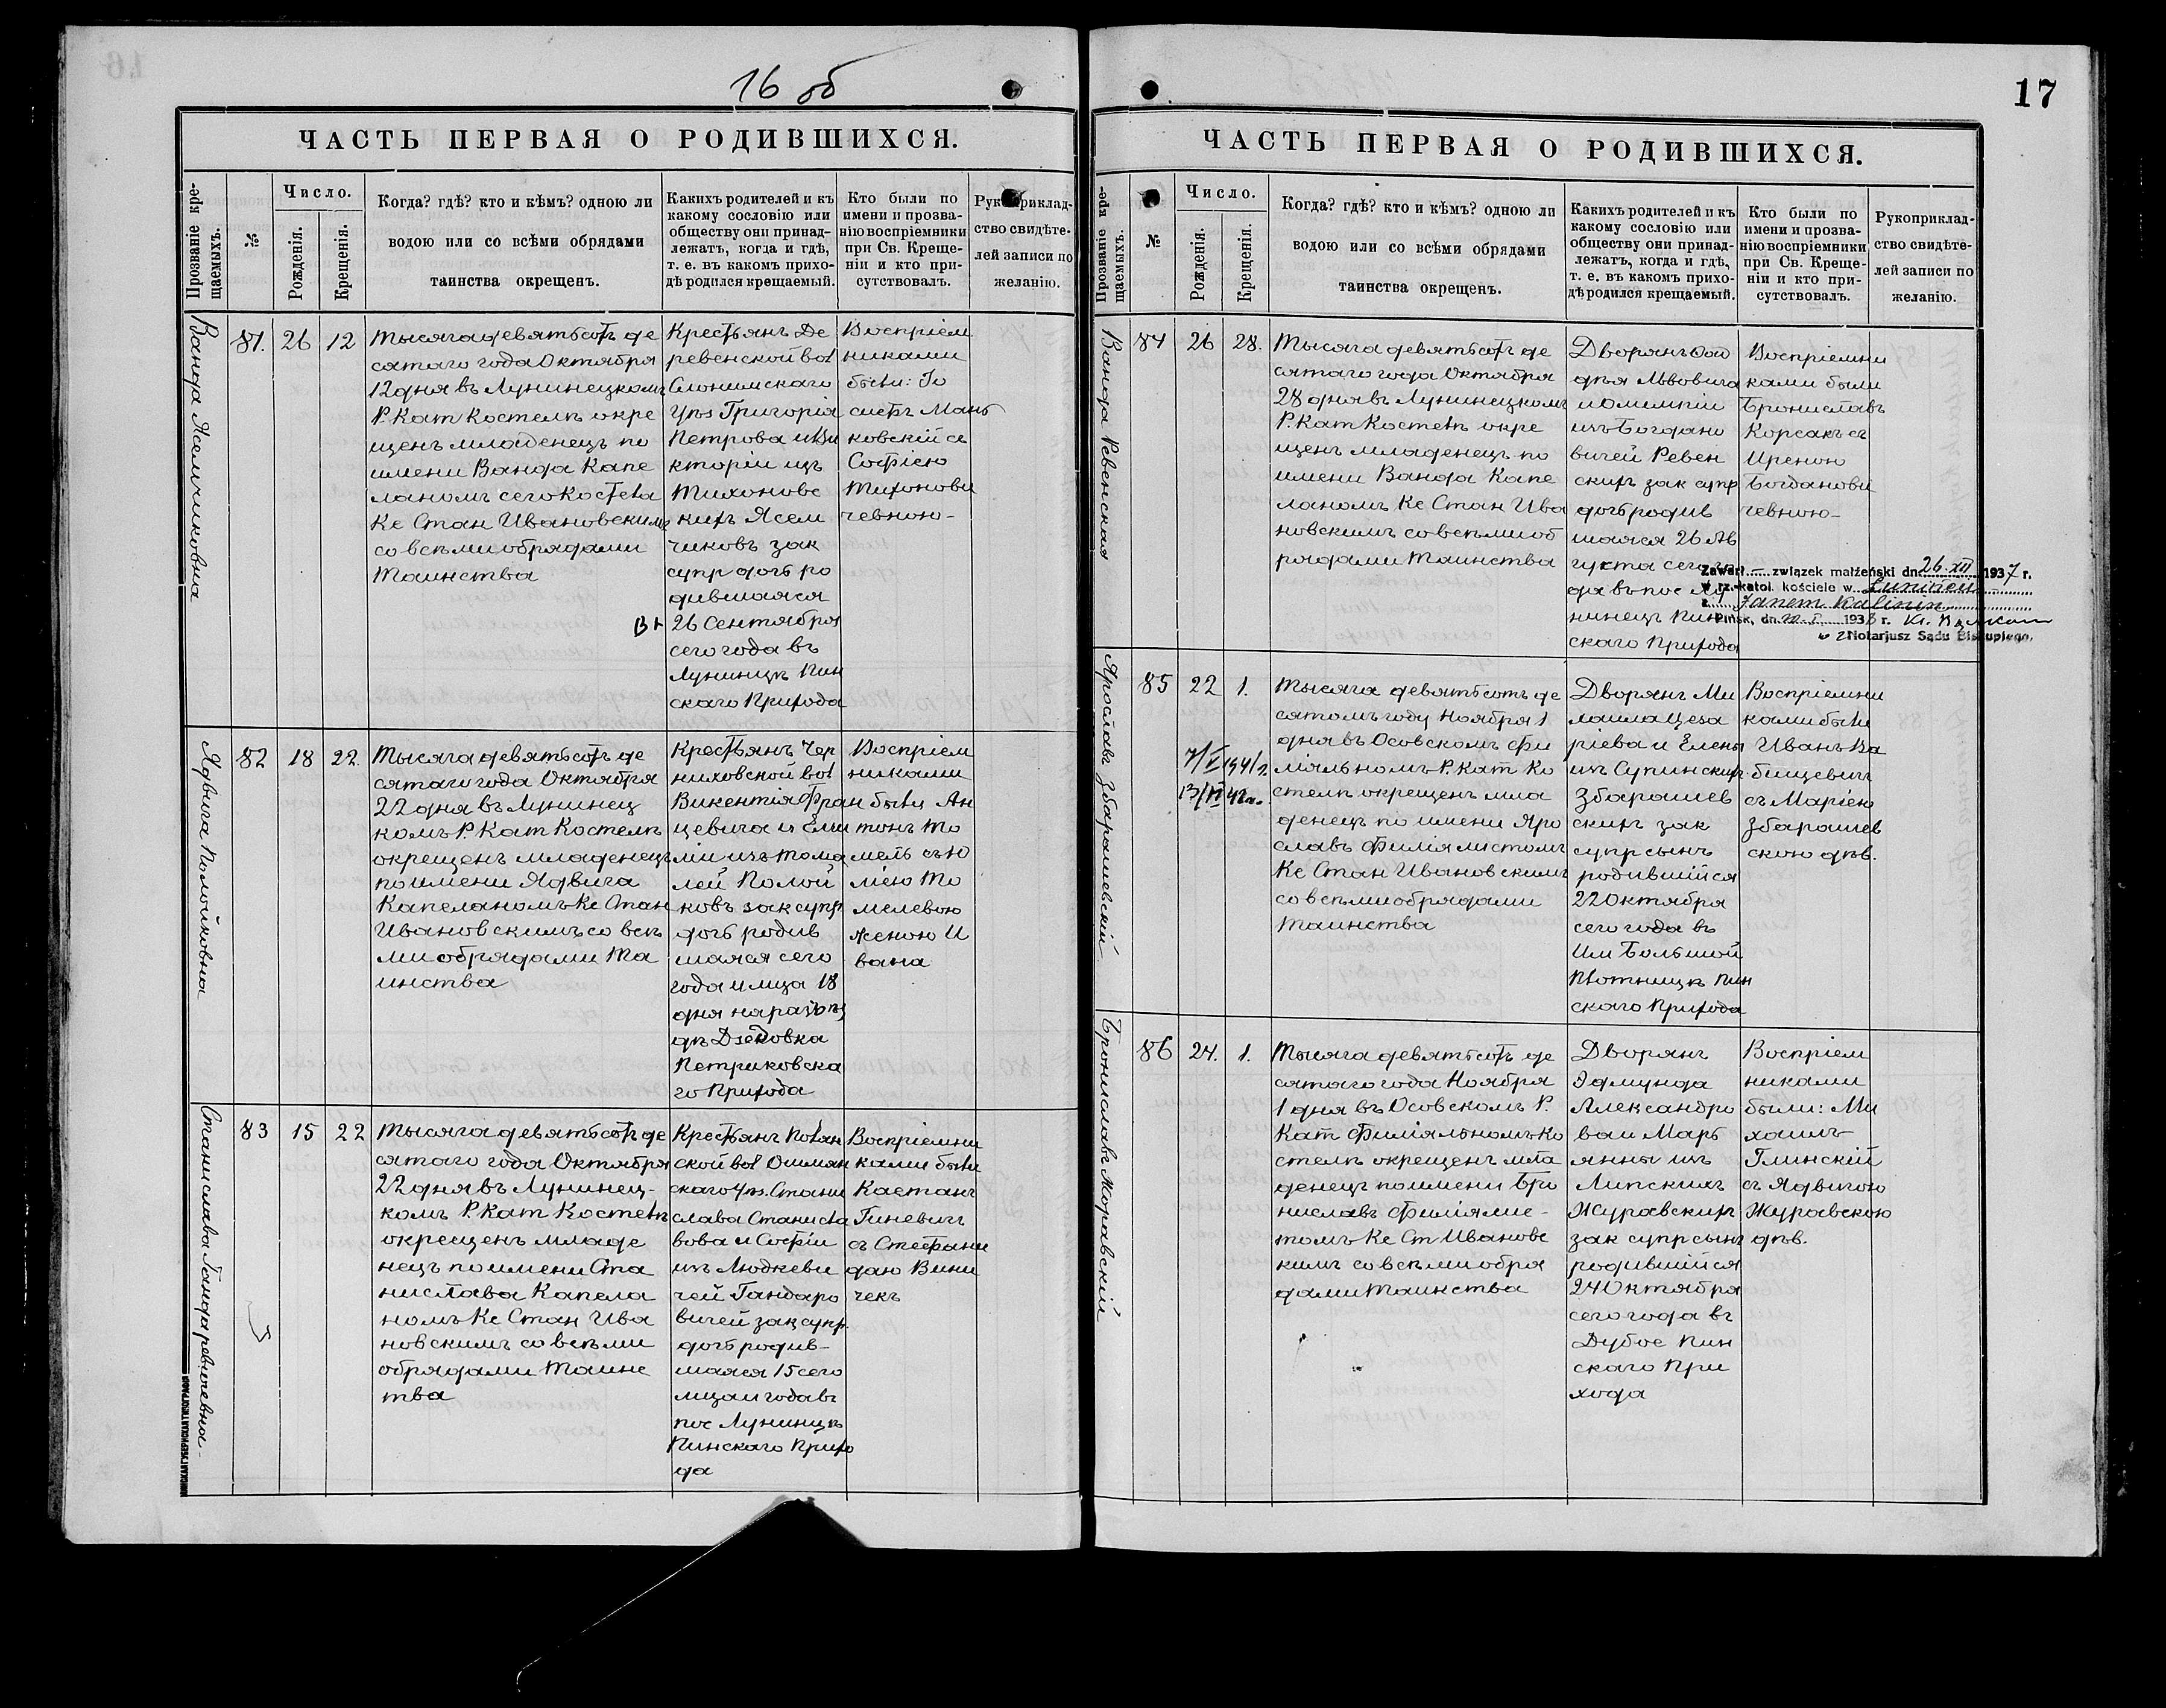 16 об
ЧАСТЬ ПЕРВАЯ О РОДИВШИХСЯ.
Прозваніе кре-
щаемыхъ.
№
Число.
Рожденія.
Крещенія.
Когда? гдѣ? кто и кѣмъ? одною ли
водою или со всѣми обрядами
таинства окрещенъ.
Какихъ родителей и къ
какому сословію или
обществу они принад-
лежатъ, когда и гдѣ,
т. е. въ какомъ прихо-
дѣ родился крещаемый.
Кто были по
имени и прозва-
нію воспріемники
при Св. Креще-
ніи и кто при-
сутствовалъ.
Рукоприклад-
ство свидѣте-
лей записи по
желанію.
Ванда Ясемчиковна
81.
26
12
Тысяча девятьсотъ де
сятаго года Октября
12 дня въ Лунинецкомъ
Р. Кат Костелѣ окре
щенъ младенецъ по
имени Ванда Капе
ланомъ сего Костела
Кс Стан Ивановскимъ
со всѣми обрядами
Таинства
Крестьянъ Де
ревенской вол
Слонимскаго
Уѣз Григорія
Петрова и Ви
кторіи изъ
Тихоновс
кихъ Ясем
чиковъ зак
супр дочь ро
дившаяся
26 Сентября
сего года въ
Лунинцѣ Пин
скаго Прихода
Воспріем
никами
были: Іо
сифъ Мань
ковскій съ
Софіею
Тихонови
чевною-
Ядвига Помойковна
82
18
22
Тысяча девятьсотъ де
сятаго года Октября
22 дня въ Лунинец
комъ Р. Кат Костелѣ
окрещенъ младенецъ
по имени Ядвига
Капеланомъ Кс Стан
Ивановскимъ со всѣ
ми обрядами Та
инства
Крестьянъ Чер
ниховской вол
Викентія Фран
цевича и Еми
ліи изъ Тома
лей Помой
ковъ зак супр
дочь родив
шаяся сего
года и мца 18
дня на разъѣз
дѣ Дзедовка
Петриковска
го Прихода
Воспріем
никами
были Ан
тонъ То
мель съ Ю
ліею То
мелевою
женою И
вана
Станислава Гандаревичевна-
83
15
22
Тысяча девятьсотъ де
сятаго года Октября
22 дня въ Лунинец-
комъ Р. Кат Костелѣ
окрещенъ младе
нецъ по имени Ста
нислава Капела
номъ Кс Стан Ива
новскимъ со всѣми
обрядами Таинс
тва
Крестьянъ Полян
ской вол Ошмян
скаго Уѣз. Стани
слава Станисла
вова и Софіи
изъ Людкеви
чей Гандаро
вичей зак супр.
дочь родив-
шаяся 15 сего
мца и года въ
пос Лунинцѣ
Пинскаго Прихо
да
Воспріемни
ками были
Каетанъ
Гиневичъ
съ Стефани
дою Вини
чекъ
17
ЧАСТЬ ПЕРВАЯ О РОДИВШИХСЯ.
Прозваніе кре-
щаемыхъ.
№
Число.
Рожденія.
Крещенія.
Когда? гдѣ? кто и кѣмъ? одною ли
водою или со всѣми обрядами
таинства окрещенъ.
Какихъ родителей и къ
какому сословію или
обществу они принад-
лежатъ, когда и гдѣ,
т. е. въ какомъ прихо-
дѣ родился крещаемый.
Кто были по
имени и прозва-
нію воспріемники
при Св. Креще-
ніи и кто при-
сутствовалъ.
Рукоприклад-
ство свидѣте-
лей записи по
желанію.
Ванда Ревенская
84
26
28.
Тысяча девятьсотъ де
сятаго года Октября
28 дня въ Лунинецкомъ
Р. Кат Костелѣ окре
щенъ младенецъ по
имени Ванда Капе
ланомъ Кс Стан Ива
новскимъ со всѣми об
рядами Таинства
Дворянъ
Львовича
и Олимпіи
изъ Богдано
вичей Ревен
скихъ зак супр
дочь родив
шаяся 26 Ав
густа сего го
да въ пос Лу
нинецъ Пин
скаго Прихода
Воспріемни
ками были
Брониславъ
Корсакъ съ
Иреною
Богданови
чевною-
Zawarł - związek małżeński dn. 26.XII 1937 r.
w rz.-katol. kościele w Łunińcu
z Janem Kalinin
Pińsk, dn. 1938 r.
Notarjusz Sądu Biskupiego.
Ярославъ Збарашевскій
85
22
1.
7/V 1941 г.
13/VI 42 г.
Тысяча девятьсотъ де
сятомъ году Ноября 1
дня въ Осовскомъ Фи
ліяльномъ Р. Кат Ко
стелѣ окрещенъ мла
денецъ по имени Яро
славъ Филіялистомъ
Кс Стан Ивановскимъ
со всѣми обрядами
Таинства
Дворянъ Ми
хаила Цеза
ріева и Елены
изъ Супинскихъ
Збарашев
скихъ зак
супр сынъ
родившійся
22 Октября
сего года въ
Им Большой
Плотницѣ Пин
скаго Прихода
Воспріемни
ками были
Иванъ Ва
бищевичъ
съ Маріею
Збарашев
скою дѣв.
Брониславъ Журавскій
86
24.
1.
Тысяча девятьсотъ де
сятаго года Ноября
1 дня въ Осовскомъ Р.
Кат Филіяльномъ Ко
стелѣ окрещенъ мла
денецъ по имени Бро
ниславъ Филіялис-
томъ Кс Ст Ивановс
кимъ со всѣми обря
дами Таинства
Дворянъ
Эдмунда
Александро
ва и Марь
янны изъ
Липскихъ
Журавскихъ
зак супр сынъ
родившійся
24 Октября
сего года въ
Дубое Пин
скаго При
хода
Воспріем
никами
были: Ми
хаилъ
Глинскій
съ Ядвигою
Журавскою
дѣв.